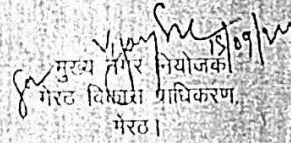 15/09/
मुख्य नगर नियोजक
मेरठ विकास प्राधिकरण,
मेरठ।